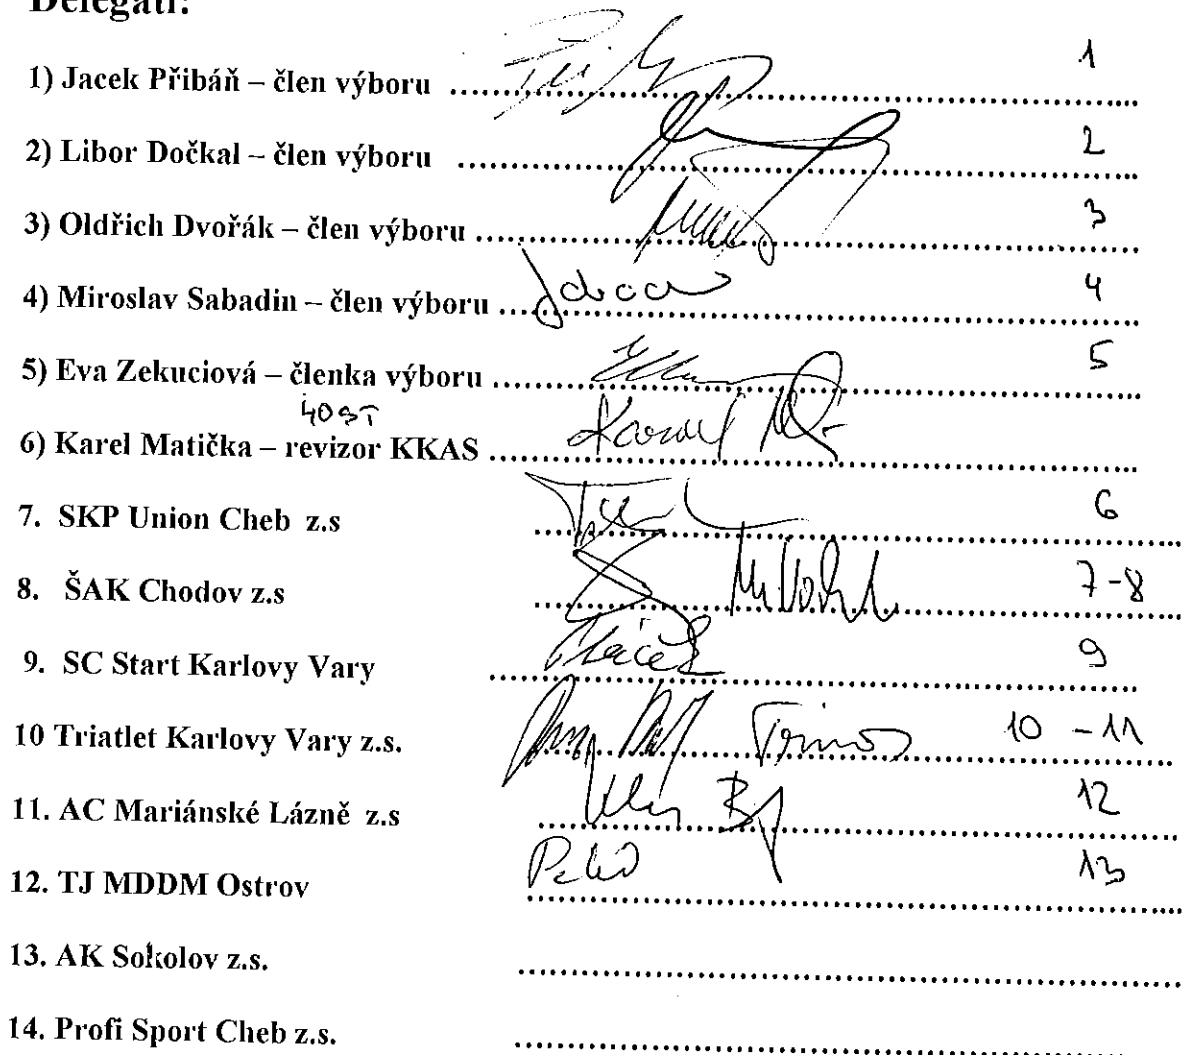 Delegáti:
1) Jacek Přibáň – člen výboru ........ 1
2) Libor Dočkal – člen výboru ........ 2
3) Oldřich Dvořák – člen výboru ........ 3
4) Miroslav Sabadin – člen výboru ........ 4
5) Eva Zekuciová – členka výboru ........ 5
HOST
6) Karel Matička – revizor KKAS ........ Karel
7. SKP Union Cheb z.s ........ 6
8. ŠAK Chodov z.s ........ 7-8
9. SC Start Karlovy Vary ........ 9
10 Triatlet Karlovy Vary z.s. ........ 10 - 11
11. AC Mariánské Lázně z.s ........ 12
12. TJ MDDM Ostrov ........ 13
13. AK Sokolov z.s. ........
14. Profi Sport Cheb z.s. ........